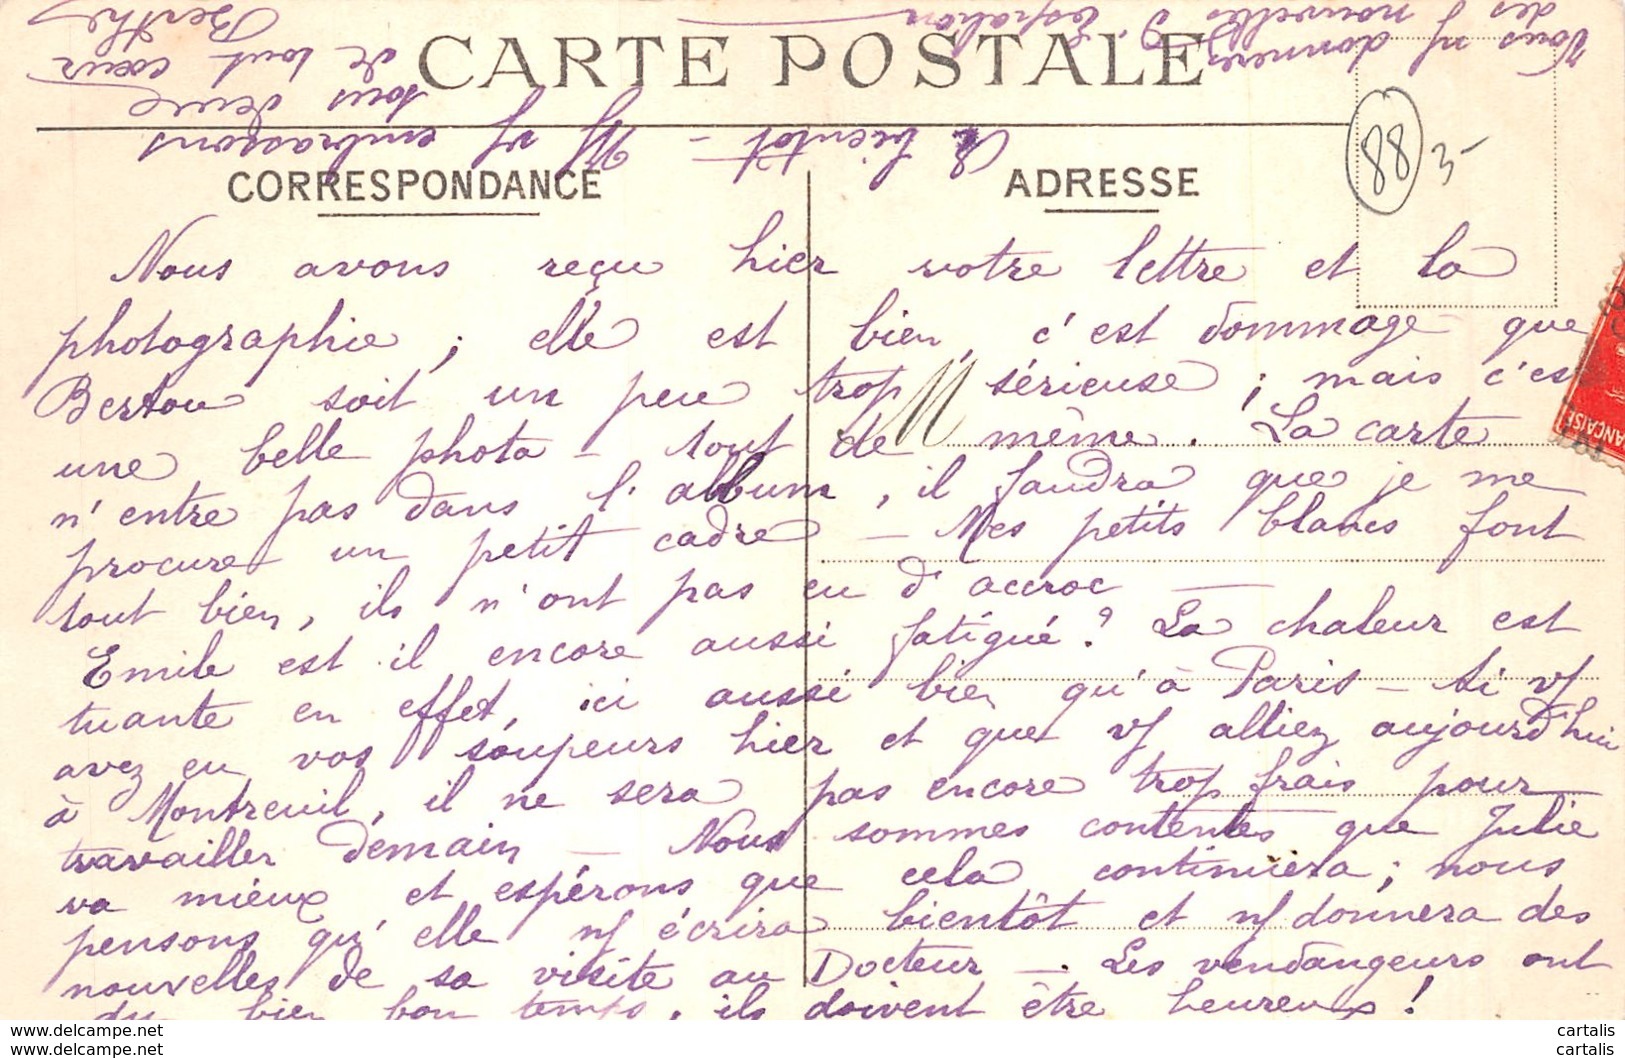 CARTE POSTALE
CORRESPONDANCE
ADRESSE
88
3-
Nous avons reçu hier votre lettre et la
photographie ; elle est bien, c'est dommage que
Bertou soit un peu trop sérieuse ; mais c'est
une belle photo - tout de même. La carte
n'entre pas dans l'album, il faudra que je me
procure un petit cadre - Mes petits blancs font
tout bien, ils n'ont pas eu d'accroc -
Emile est il encore aussi fatigué ? La chaleur est
tuante en effet, ici aussi bien qu'à Paris - Si vs
avez eu vos soupeurs hier et que vs alliez aujourd'hui
à Montreuil, il ne sera pas encore trop frais pour
travailler demain - Nous sommes contentes que Julie
va mieux et espérons que cela continuera ; nous
pensons qu'elle ns écrira bientôt et ns donnera des
nouvelles de sa visite au Docteur - Les vendangeurs ont
du bien bon temps, ils doivent être heureux !
Vous ns donnerez
des nouvelles d'
A bientôt - Ns vs embrassons
tous deux
de tout cœur
Berthe
FRANÇAISE
cartalis.com
cartalis.com
cartalis
cartalis